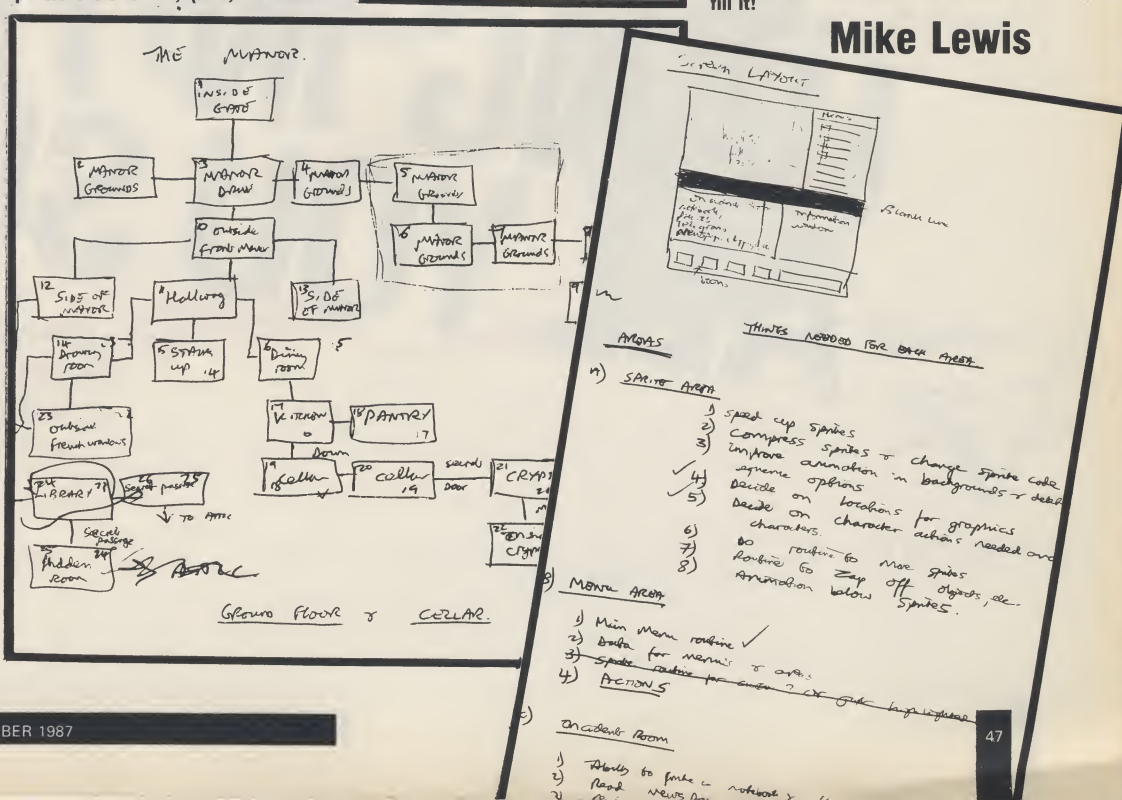 fill it!
Mike Lewis
THE MANOR.
1 INSIDE
GATE
2 MANOR
GROUNDS
3 MANOR
4 MANOR
Grounds
5 MANOR
Grounds
6 MANOR
Grounds
MANOR
Grounds
10 outside
front Manor
12 SIDE OF
MANOR
Hallway
13 SIDE
OF MANOR
14 Drawing
room
STAIRS
up 14
Dining
room
5
23
outside
french windows
17 KITCHEN
18 PANTRY
17
Down
19 Cellar
18
20 cellar
19
secret
Door
21 CRYPT
24
LIBRARY
secret passage
TO ATTIC
secret
passage
Hidden
room
22
crypt
GROUND FLOOR & CELLAR.
BER 1987
Screen LAYOUT
Menu
notebook,
information
window
Blank line
icons
THINGS NEEDED FOR EACH AREA
AREAS
A) SPRITE AREA
1) Speed up sprites
2) Compress sprites & change sprite code
3) improve animation in backgrounds &
options
4) Decide on locations for graphics
5) Decide on character actions needed and
characters.
6) Do routine to move sprites
7) Routine to zap off objects, etc.
8) Animation below sprites.
B) MENU AREA
1) Main Menu routine ✓
2) Data for menus &
3) Sprite routine for
4) ACTIONS
incident Room
1) Ability to
notebook &
2) Read news
47